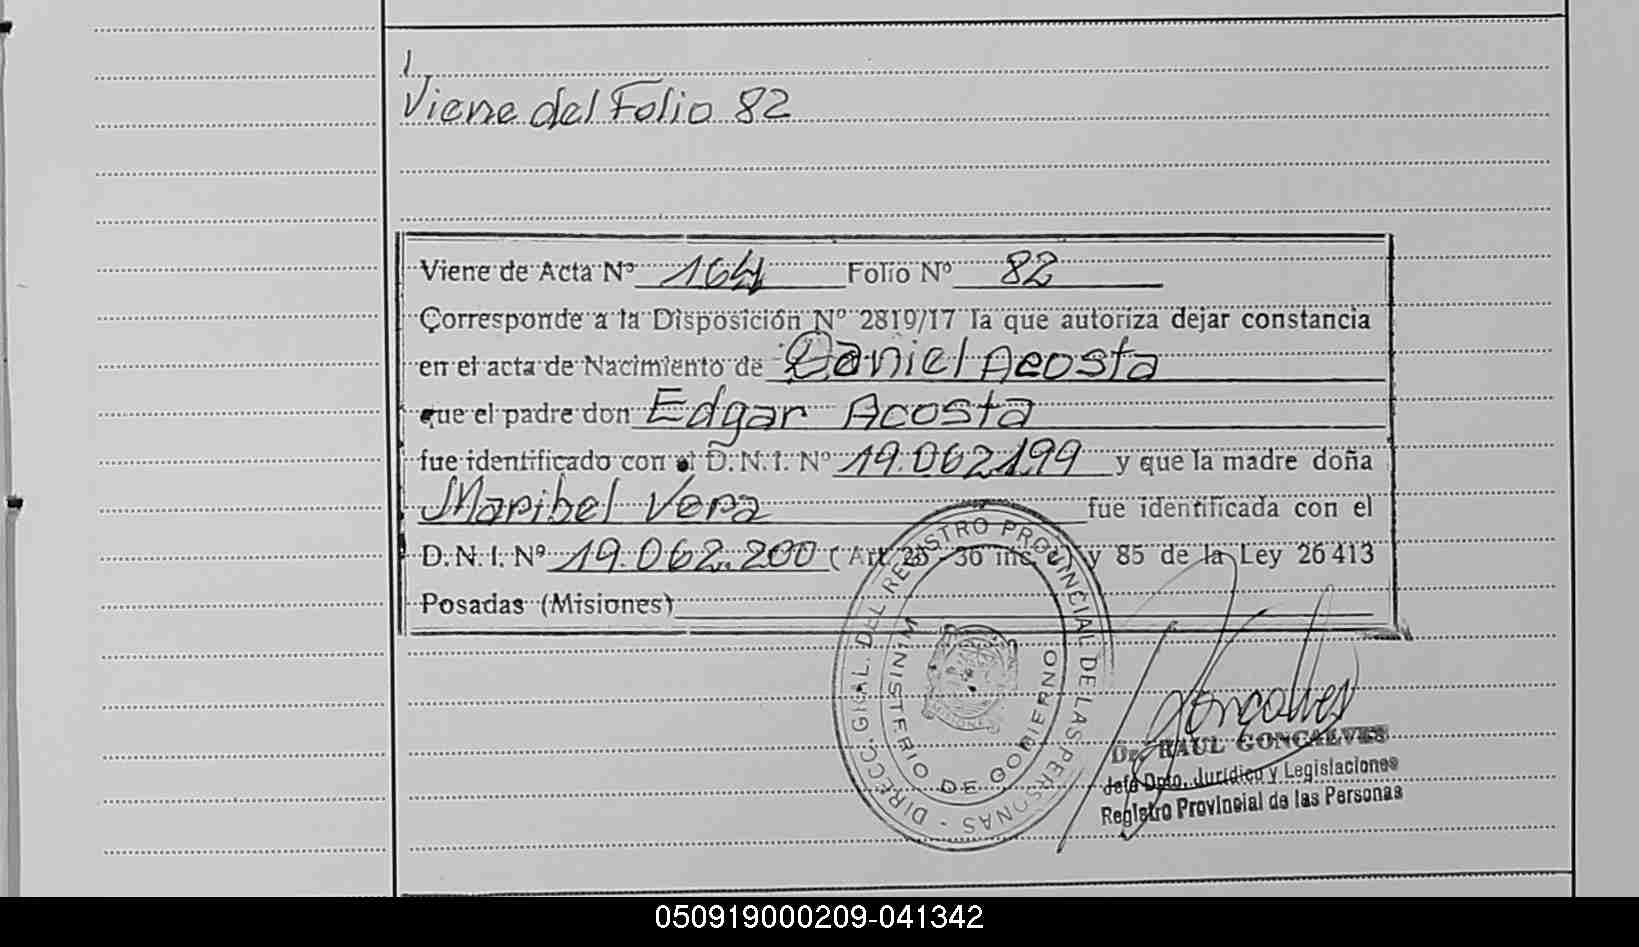 Viene del Folio 82
Viene de Acta Nº 164 Folio Nº 82
Corresponde a la Disposición Nº 2819/17 la que autoriza dejar constancia
en el acta de Nacimiento de Daniel Acosta
que el padre don Edgar Acosta
fue identificado con el D.N.I. Nº 19.062.199 y que la madre doña
Maribel Vera fue identificada con el
D.N.I. Nº 19.062.200 (Art. 25 - 36 inc. c) y 85 de la Ley 26 413
Posadas (Misiones)
DIRECC. GRAL. DEL REGISTRO PROVINCIAL DE LAS PERSONAS -
MINISTERIO DE GOBIERNO
MISIONES
Goncalves
Dr. RAUL GONCALVES
Jefe Dpto. Jurídico y Legislaciones
Registro Provincial de las Personas
050919000209-041342